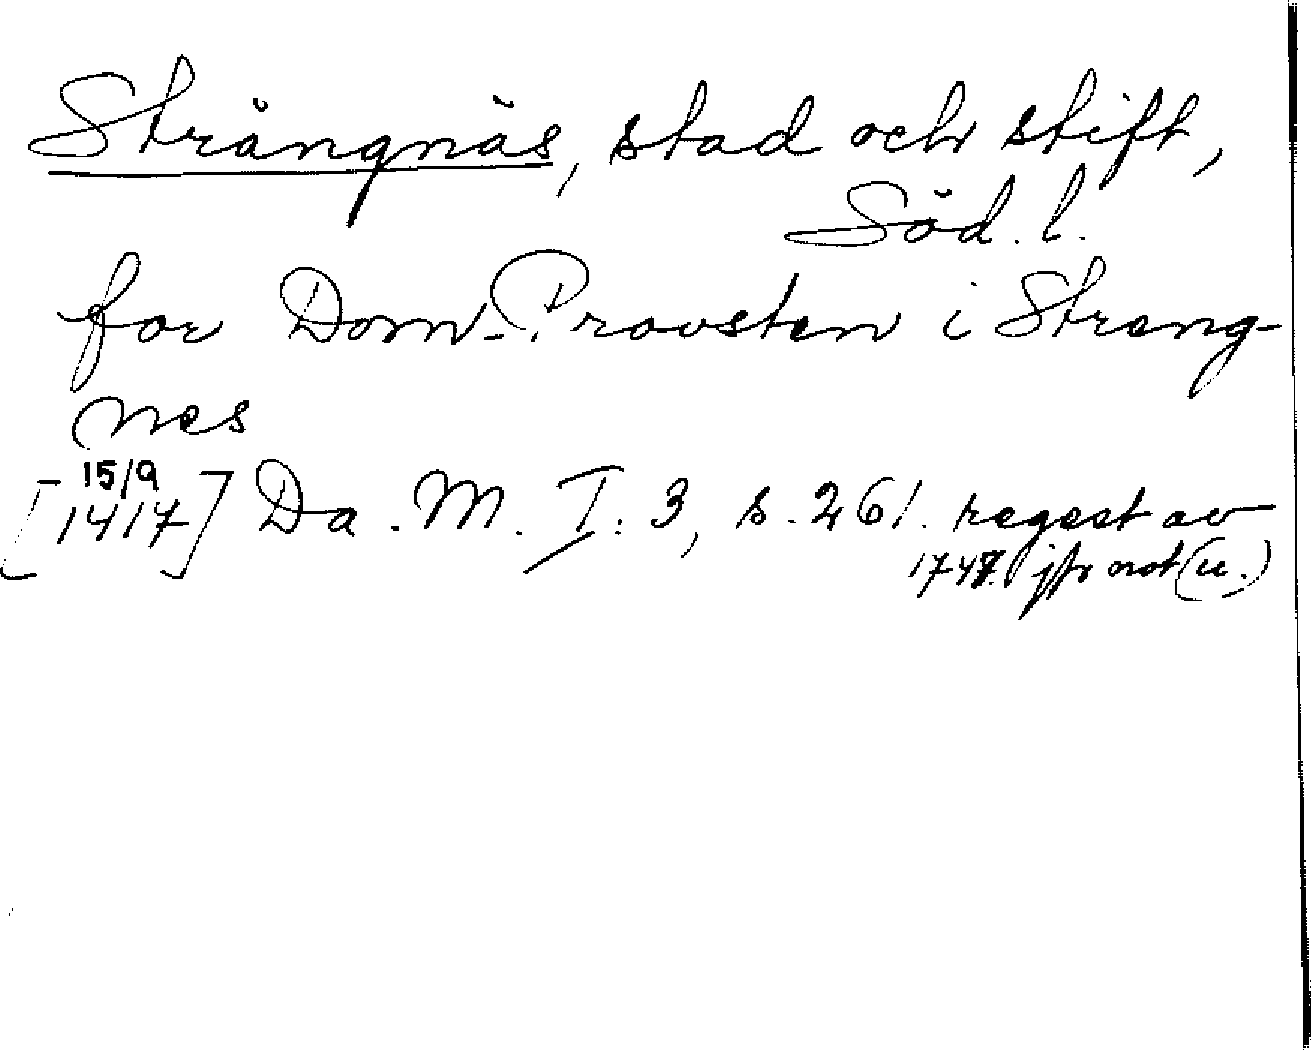 Strängnäs, stad och stift,
Söd. l.
for Dom-Provsten i Streng-
nes
15/9
[1417] Da. M. I: 3, s. 261. regest av
1747. jfr not (u.)